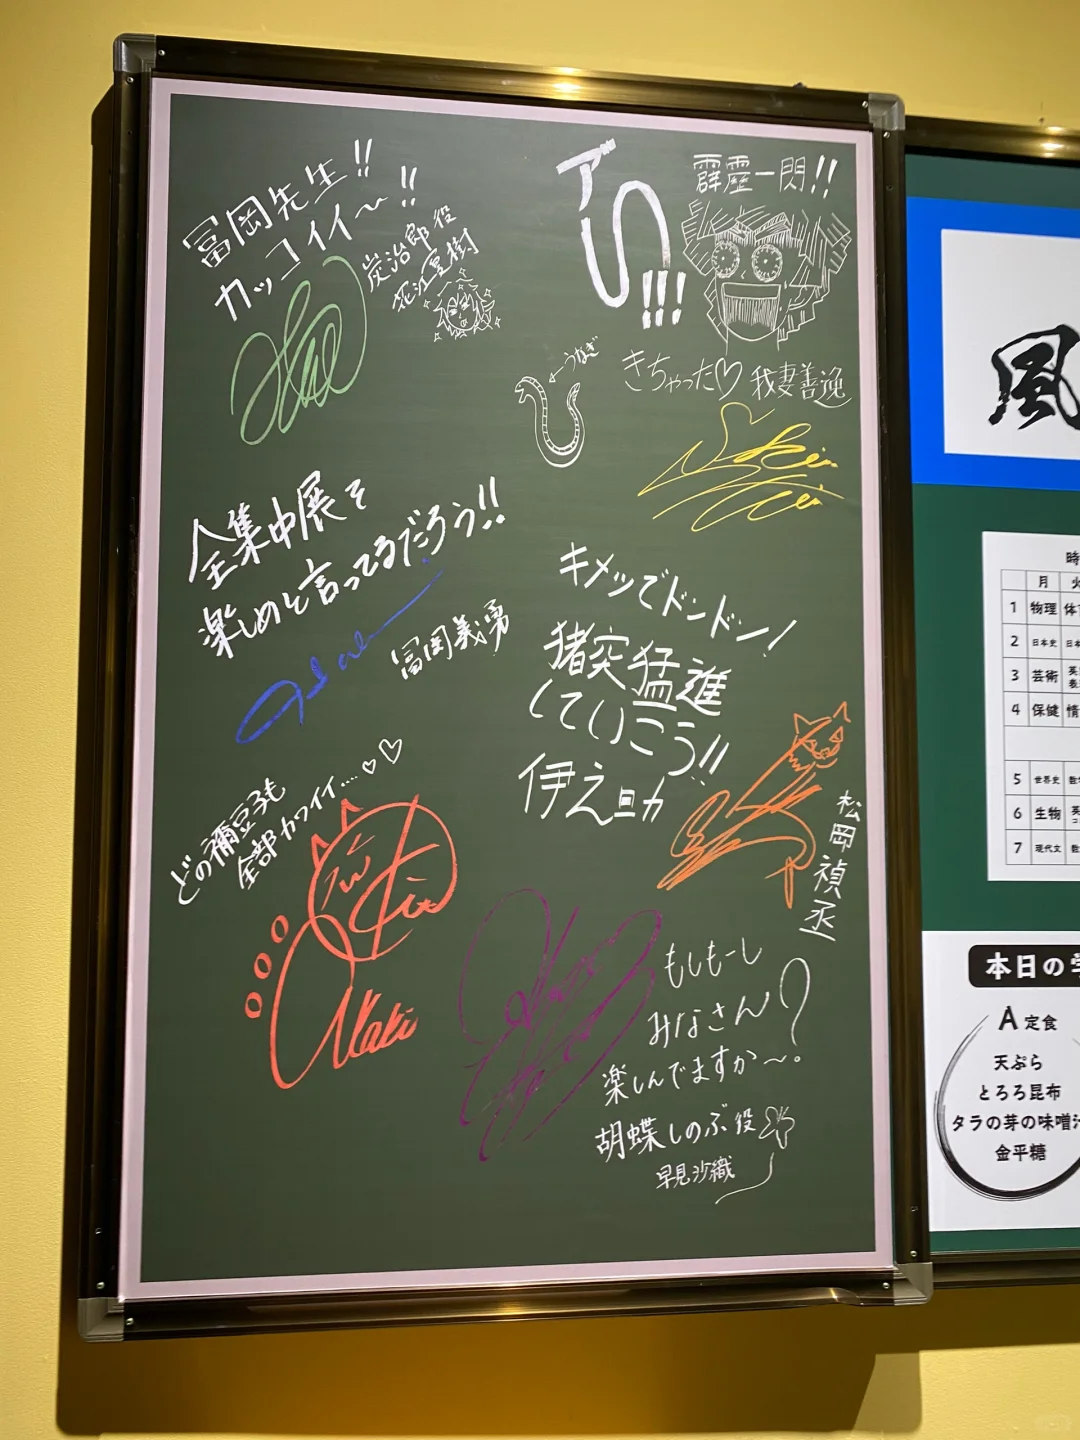 冨岡先生!!
カッコイイ〜!!
炭治郎役
花江夏樹
霹靂一閃!!
うなぎ
きちゃった♡
我妻善逸
全集中展を
楽しめと言ってるだろう!!
冨岡義勇
キメツでドンドン!
猪突猛進
していこう!!
伊之助
松岡禎丞
どの禰豆子も
全部カワイイ....♡♡
Akari
もしもーし
みなさん
楽しんでますか〜?
胡蝶しのぶ役
早見沙織
風
時
月
1 物理
2 日本史
3 芸術
4 保健
5 世界史
6 生物
7 現代文
本日の
A定食
天ぷら
とろろ昆布
タラの芽の味噌汁
金平糖